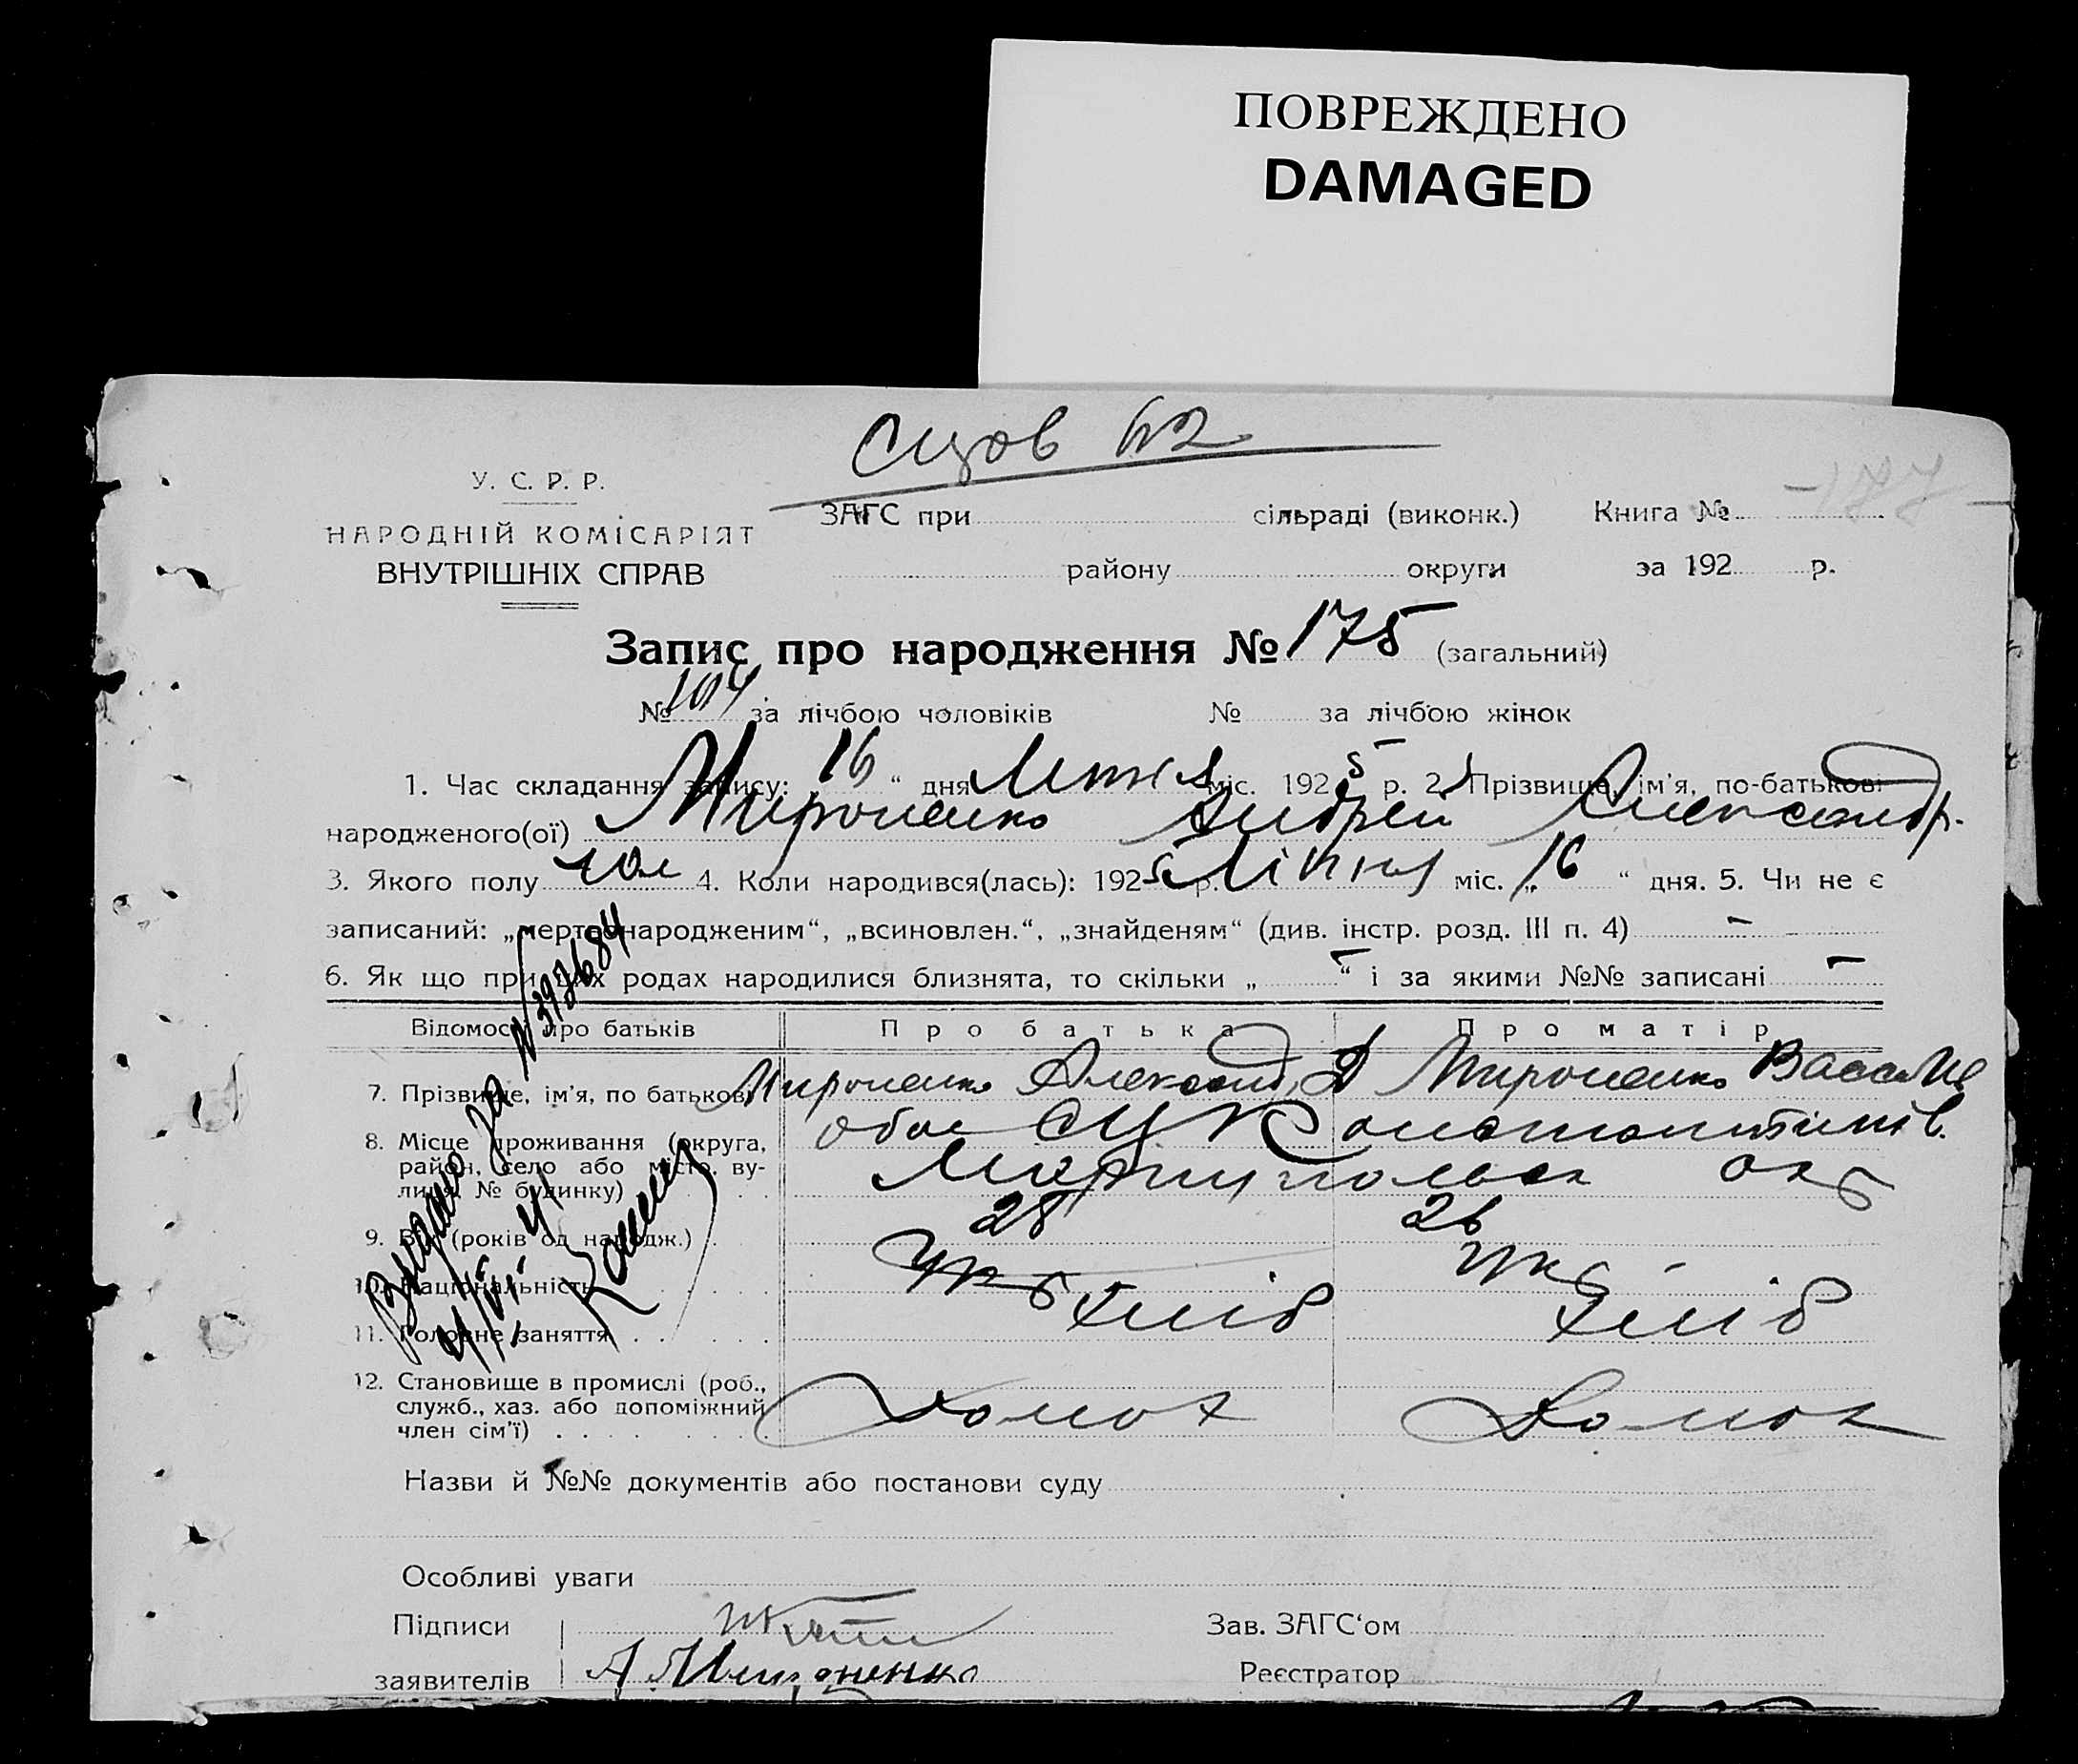 ПОВРЕЖДЕНО
DAMAGED
У. С. Р. Р.
НАРОДНІЙ КОМІСАРІЯТ
ВНУТРІШНІХ СПРАВ
ЗАГС при сільраді (виконк.) Книга № 177
району округи за 192 р.
Запис про народження № 175 (загальний)
№ 104 за лічбою чоловіків № за лічбою жінок
1. Час складання запису: 16 “ дня Липня міс. 1925 р. 2. Прізвище, ім'я, по-батькові
народженого(ої) Мироненко Андрей Александр.
3. Якого полу чол 4. Коли народився(лась): 1925 р. Липня міс. „ 16 “ дня. 5. Чи не є
записаний: „мертвонародженим“, „всиновлен.“, „знайденям“ (див. інстр. розд. III п. 4) –
6. Як що при цих родах народилися близнята, то скільки „ – “ і за якими №№ записані –
Відомості про батьків Про батька Про матір
7. Прізвище, ім'я, по батькові Мироненко Александ. Мироненко
8. Місце проживання (округа, район, село або місто, вулиця, № будинку)
Константинів.
Мариупольск окр
9. Вік (років од народж.) 28 26
10. Національність Укр Укр
11. Головне заняття Хліб Хліб
12. Становище в промислі (роб., служб., хаз. або допоміжний член сім'ї)
Видано за № 397684
Назви й №№ документів або постанови суду
Особливі уваги
Підписи заявителів
А. Мироненко
Зав. ЗАГС‘ом
Реєстратор